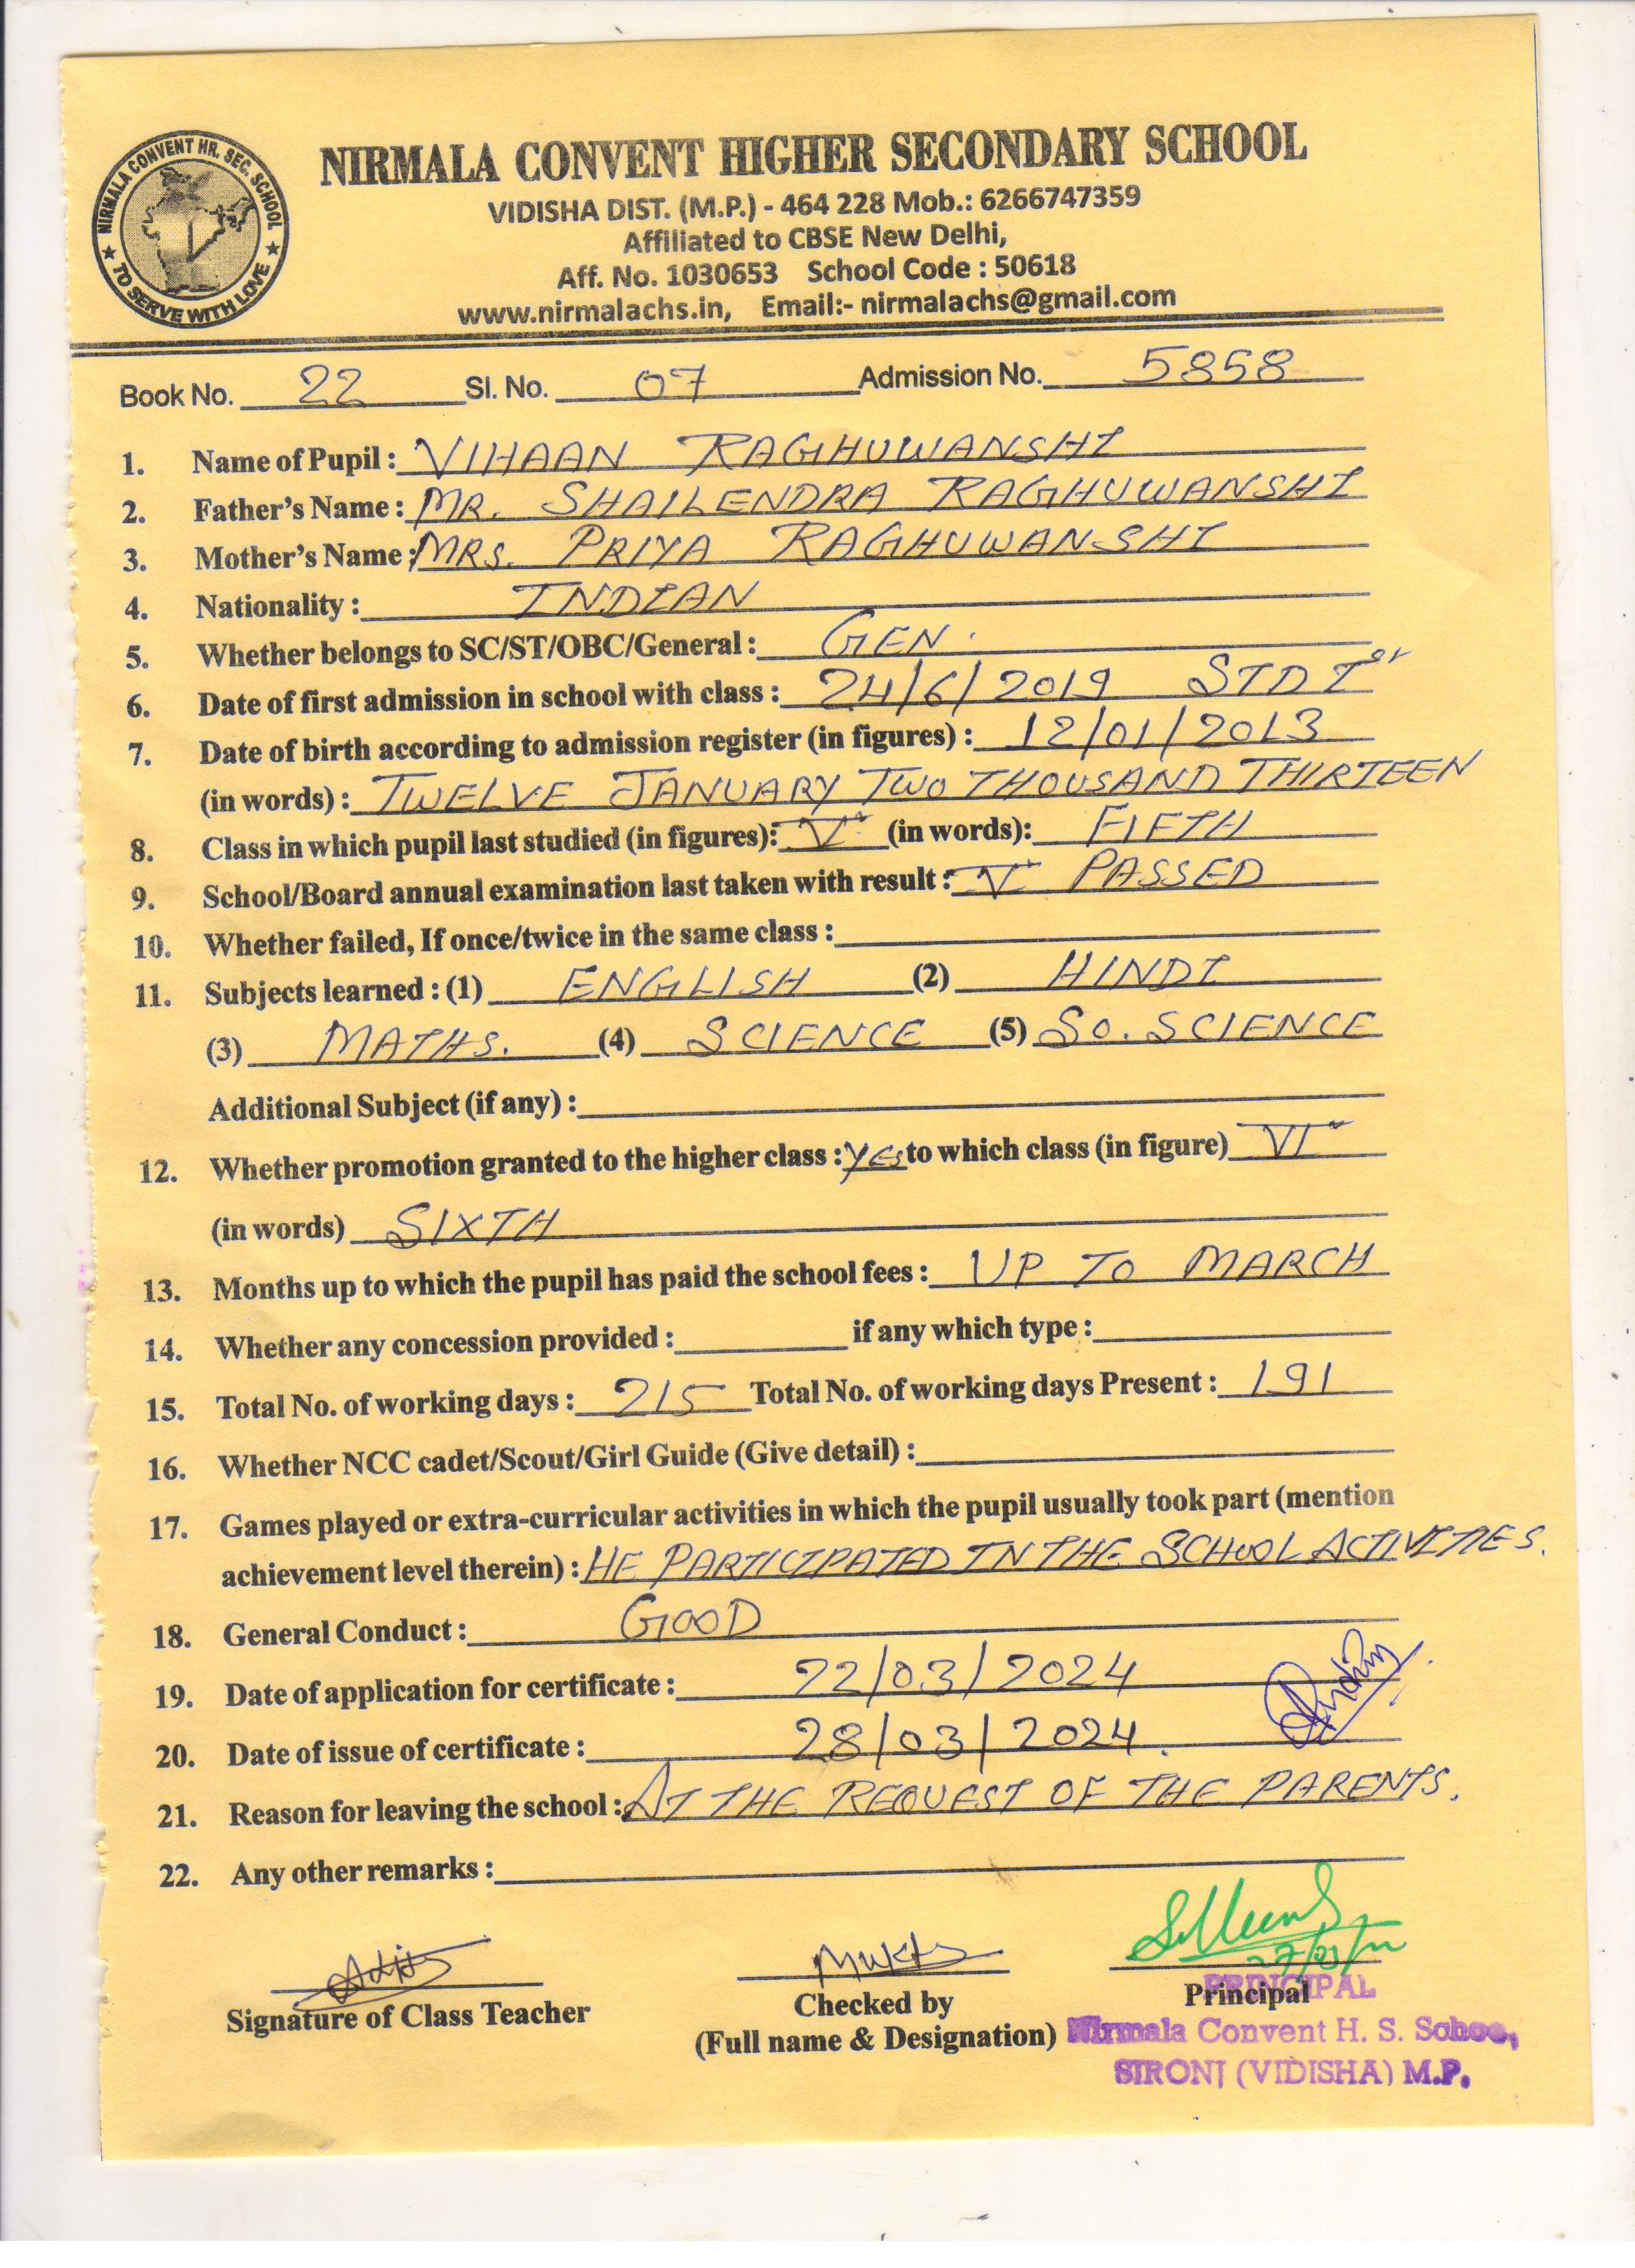 NIRMALA CONVENT HR. SEC. SCHOOL
TO SERVE WITH LOVE
NIRMALA CONVENT HIGHER SECONDARY SCHOOL
VIDISHA DIST. (M.P.) - 464 228 Mob.: 6266747359
Affiliated to CBSE New Delhi,
Aff. No. 1030653 School Code : 50618
www.nirmalachs.in, Email:- nirmalachs@gmail.com
Book No. 22 Sl. No. 07 Admission No. 5858
1. Name of Pupil : VIHAAN RAGHUWANSHI
2. Father's Name : MR. SHAILENDRA RAGHUWANSHI
3. Mother's Name : MRS. PRIYA RAGHUWANSHI
4. Nationality : INDIAN
5. Whether belongs to SC/ST/OBC/General : GEN.
6. Date of first admission in school with class : 24/6/2019 STD I
7. Date of birth according to admission register (in figures) : 12/01/2013
(in words) : TWELVE JANUARY TWO THOUSAND THIRTEEN
8. Class in which pupil last studied (in figures): V (in words): FIFTH
9. School/Board annual examination last taken with result : V PASSED
10. Whether failed, If once/twice in the same class :
11. Subjects learned : (1) ENGLISH (2) HINDI
(3) MATHS. (4) SCIENCE (5) SO. SCIENCE
Additional Subject (if any) :
12. Whether promotion granted to the higher class : YES to which class (in figure) VI
(in words) SIXTH
13. Months up to which the pupil has paid the school fees : UP TO MARCH
14. Whether any concession provided : if any which type :
15. Total No. of working days : 215 Total No. of working days Present : 191
16. Whether NCC cadet/Scout/Girl Guide (Give detail) :
17. Games played or extra-curricular activities in which the pupil usually took part (mention
achievement level therein) : HE PARTICIPATED IN THE SCHOOL ACTIVITIES.
18. General Conduct : GOOD
19. Date of application for certificate : 22/03/2024
20. Date of issue of certificate : 28/03/2024.
21. Reason for leaving the school : AT THE REQUEST OF THE PARENTS.
22. Any other remarks :
Signature of Class Teacher
Checked by
(Full name & Designation)
Principal
PRINCIPAL
Nirmala Convent H. S. Schoo,
SIRONJ (VIDISHA) M.P.